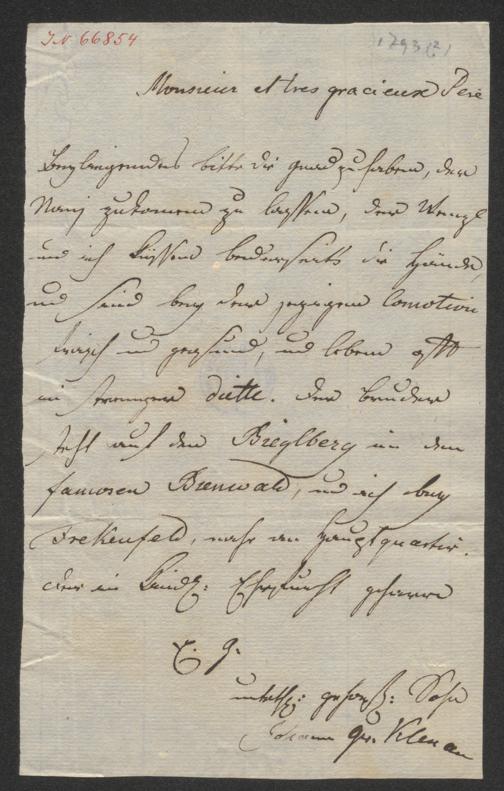 I.N. 66854
1793 (?)
Monsieur et tres gracieux Pere
Beyliegendes bitte die gnad zu haben, der
Nanj zukomen zu lassen, der Wenzl
und ich küssen bederseits die Hände,
und sind bey der jezigen Comotion
frisch und gesund, und leben oft
in strenger diette. der bruder
steht auf den Bieglberg in dem
famosen Bienwald, und ich bey
Frekenfeld, nahe an Hauptquartir.
der in Kindl: Ehrfurcht geharre
E. g.
unterth: gehors: Sohn
Johann Gr. Klenau